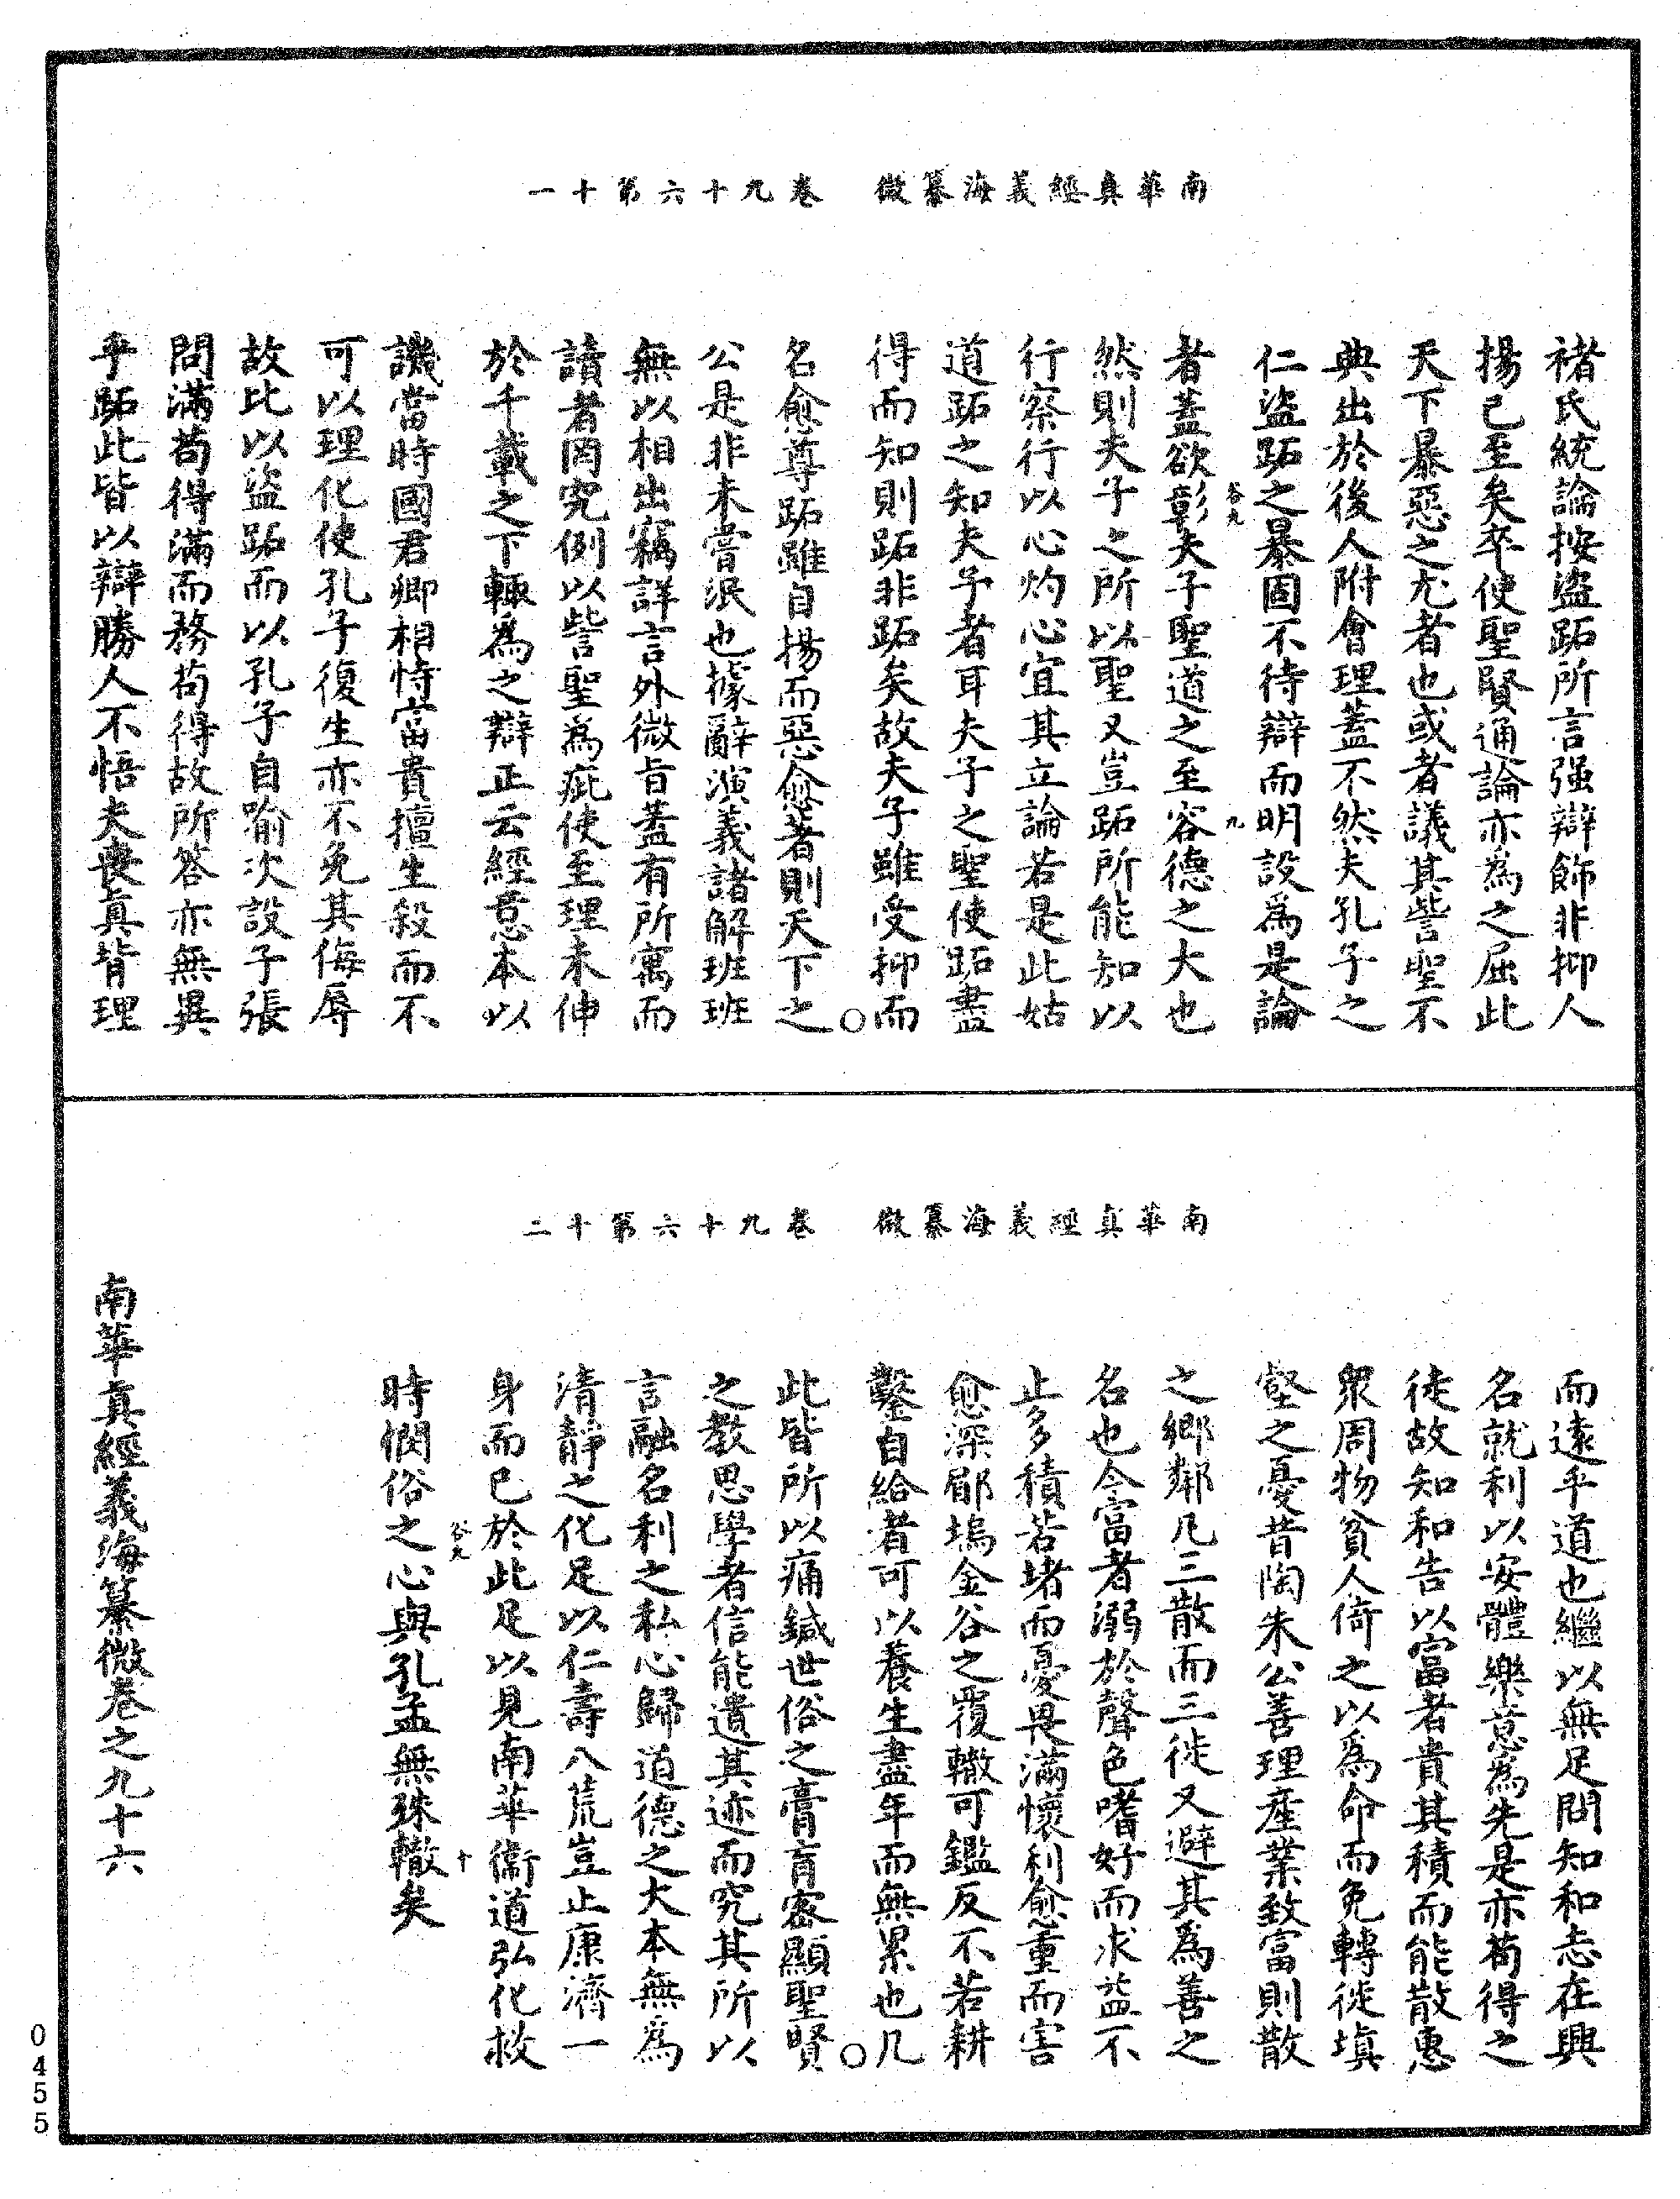 南華真經義海纂微　卷九十六第十一
褚氏統論按盜跖所言强辯飾非抑人
揚己至矣卒使聖賢通論亦為之屈此
天下暴惡之尤者也或者議其訾聖不
典出於後人附會理蓋不然夫孔子之
仁盜跖之暴固不待辯而明設為是論
者蓋欲彰夫子聖道之至容德之大也
谷九　九
然則夫子之所以聖又豈跖所能知以
行察行以心灼心宜其立論若是此姑
道跖之知夫子者耳夫子之聖使跖盡
得而知則跖非跖矣故夫子雖受抑而
名愈尊跖雖自揚而惡愈著則天下之
公是非未嘗泯也據辭演義諸解班班
無以相出竊詳言外微旨蓋有所寓而
讀者罔究例以訾聖為疵使至理未伸
於千載之下輒為之辯正云經意本以
譏當時國君卿相恃富貴擅生殺而不
可以理化使孔子復生亦不免其侮辱
故比以盜跖而以孔子自喻次設子張
問滿苟得滿而務苟得故所答亦無異
乎跖此皆以辯勝人不悟夫喪真背理
南華真經義海纂微　卷九十六第十二
而遠乎道也繼以無足問知和志在興
名就利以安體樂意為先是亦苟得之
徒故知和告以富者貴其積而能散惠
衆周物貧人倚之以為命而免轉徙填
壑之憂昔陶朱公善理產業致富則散
之鄉鄰凡三散而三徙又避其為善之
名也今富者溺於聲色嗜好而求益不
止多積若堵而憂畏滿懷利愈重而害
愈深郿塢金谷之覆轍可鑑反不若耕
鑿自給者可以養生盡年而無累也凡
此皆所以痛鍼世俗之膏肓密顯聖賢
之教思學者信能遺其迹而究其所以
言融名利之私心歸道德之大本無為
清靜之化足以仁壽八荒豈止康濟一
身而已於此足以見南華衞道弘化救
谷九　十
時憫俗之心與孔孟無殊轍矣
南華真經義海纂微卷之九十六
0455